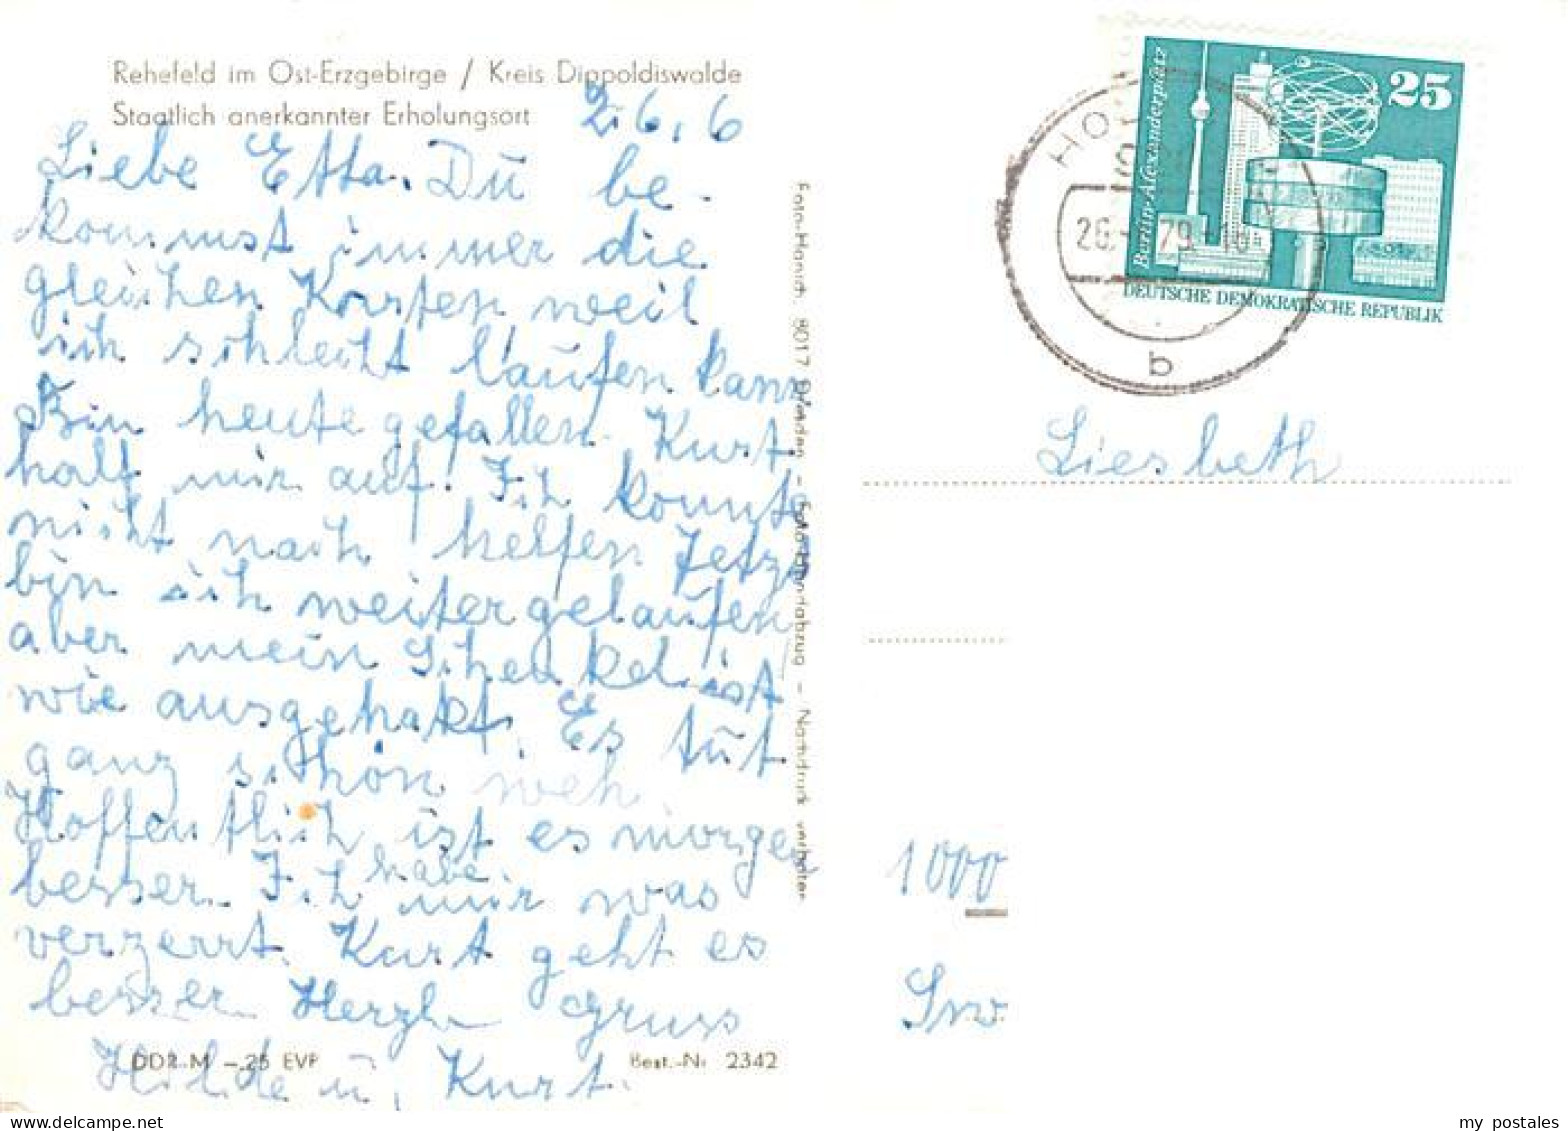 Rehefeld im Ost-Erzgebirge / Kreis Dippoldiswalde
Staatlich anerkannter Erholungsort
2.6.6
Liebe Etta. Du be-
kommst immer die
gleichen Karten weil
ich schlecht laufen kann
Bin heute gefallen. Kurt
half mir auf. Ich konnte
nicht nach helfen Jetzt
bin ich weitergelaufen
aber mein Schenkel ist
wie ausgehakt. Es tut
ganz schön weh
Hoffentlich ist es morgen
besser. Ich habe mir was
verzerrt. Kurt geht es
besser. Herzl. Gruss
Hilde u. Kurt.
DDR M -,25 EVP
Best.-Nr 2342
Foto-Hanich, 8017 Dresden - Foto-Handabzug - Nachdruck verboten
Berlin-Alexanderplatz
25
DEUTSCHE DEMOKRATISCHE REPUBLIK
26. 79
b
Liesbeth
1000
my postales